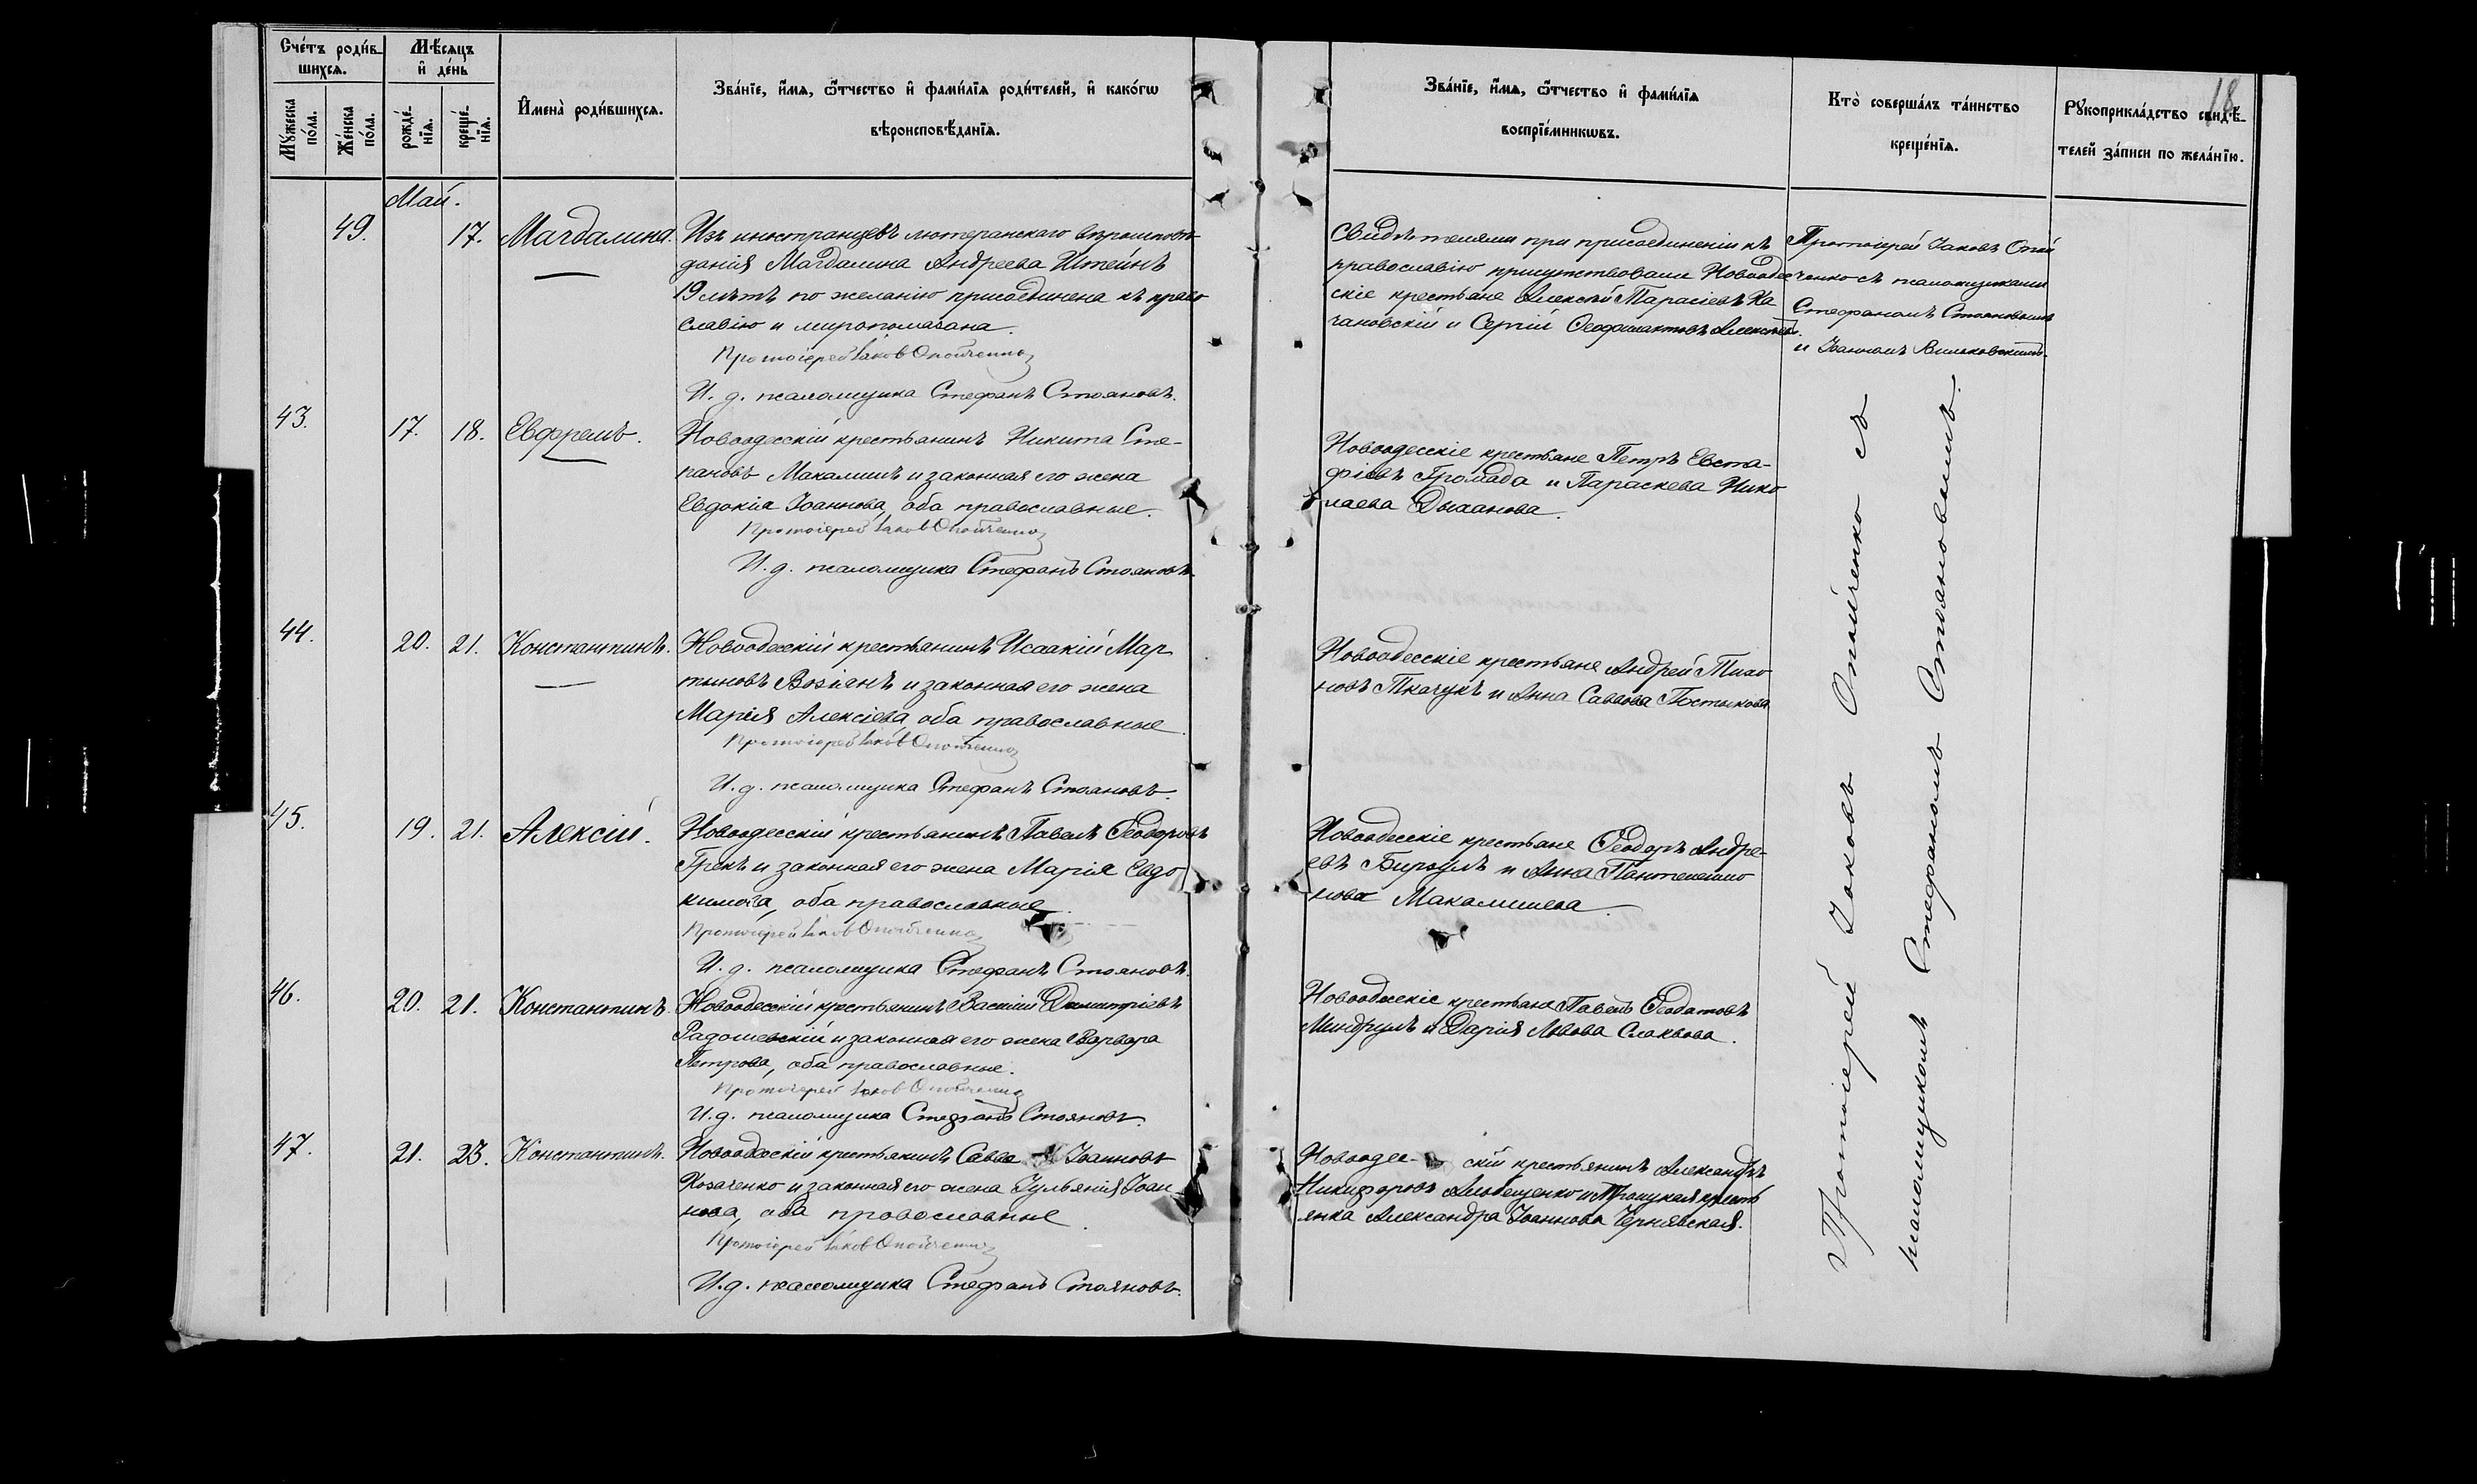 Счетъ родив-
шихся.
Мѣсяцъ
и день
Мужеска
пола.
Женска
пола.
рожде-
нія.
креще-
нія.
Имена родившихся.
Званіе, имя, отчество и фамилія родителей, и какого
вѣроисповѣданія.
Званіе, имя, отчество и фамилія
воспріемниковъ.
Кто совершалъ таинство
крещенія.
Рукоприкладство свидѣ-
телей записи по желанію.
18
Май.
49. 17. Магдалина.
Изъ иностранцевъ лютеранскаго вѣроисповѣ-
данія Магдалина Андреева Штейнъ
19 лѣтъ по желанію присоединена къ право
славію и миропомазана.
Протоіерей Іаковъ Опойченко
И. д. псаломщика Стефанъ Стояновъ.
Свидѣтелями при присоединеніи къ
православію присутствовали Новоодес
скіе крестьяне Алексѣй Тарасіевъ Ка
чановскій и Сергій Феофилактовъ Алексѣевъ.
Протоіерей Іаковъ Опой
ченко съ псаломщиками
Стефаномъ Стояновымъ
и Іоанномъ Вильковскимъ.
43. 17. 18. Евфремъ.
Новоодесскій крестьянинъ Никита Сте-
пановъ Макалишъ и законная его жена
Евдокія Іоаннова, оба православные.
Протоіерей Іаковъ Опойченко
И. д. псаломщика Стефанъ Стояновъ.
Новоодесскіе крестьяне Петръ Евста-
фіевъ Громада и Параскева Нико
лаева Дыханова.
44. 20. 21. Константинъ.
Новоодесскій крестьянинъ Исаакій Мар
тыновъ Возіянъ и законная его жена
Марія Алексіева, оба православные.
Протоіерей Іаковъ Опойченко
И. д. псаломщика Стефанъ Стояновъ.
Новоодесскіе крестьяне Андрей Тихо
новъ Ткачукъ и Анна Саввова Постыкова
45. 19. 21. Алексій.
Новоодесскій крестьянинъ Павелъ Феодоровъ
Грекъ и законная его жена Марія Евдо
кимова, оба православные.
Протоіерей Іаковъ Опойченко
И. д. псаломщика Стефанъ Стояновъ.
Новоодесскіе крестьяне Феодоръ Андре-
евъ и Анна Пантелеимо
нова Макалишева.
46. 20. 21. Константинъ.
Новоодесскій крестьянинъ Василій Димитріевъ
Радошевскій и законная его жена Варвара
Петрова, оба православные.
Протоіерей Іаковъ Опойченко
И. д. псаломщика Стефанъ Стояновъ.
Новоодесскіе крестьяне Павелъ Феодотовъ
Миндрулъ и Дарія Львова
47. 21. 23. Константинъ.
Новоодесскій крестьянинъ Савва Іоанновъ
Козаченко и законная его жена Іульянія Іоан
нова, оба православные.
Протоіерей Іаковъ Опойченко
И. д. псаломщика Стефанъ Стояновъ.
Новоодес- скій крестьянинъ Александръ
Никифоровъ и Троицкая кресть
янка Александра Іоаннова Чернявская.
Протоіерей Іаковъ Опойченко съ
псаломщикомъ Стефаномъ Стояновымъ.